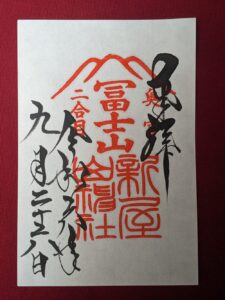 奉拝
奥宮
冨士山
二合目
新屋
山神社
令和六年
九月二十三日